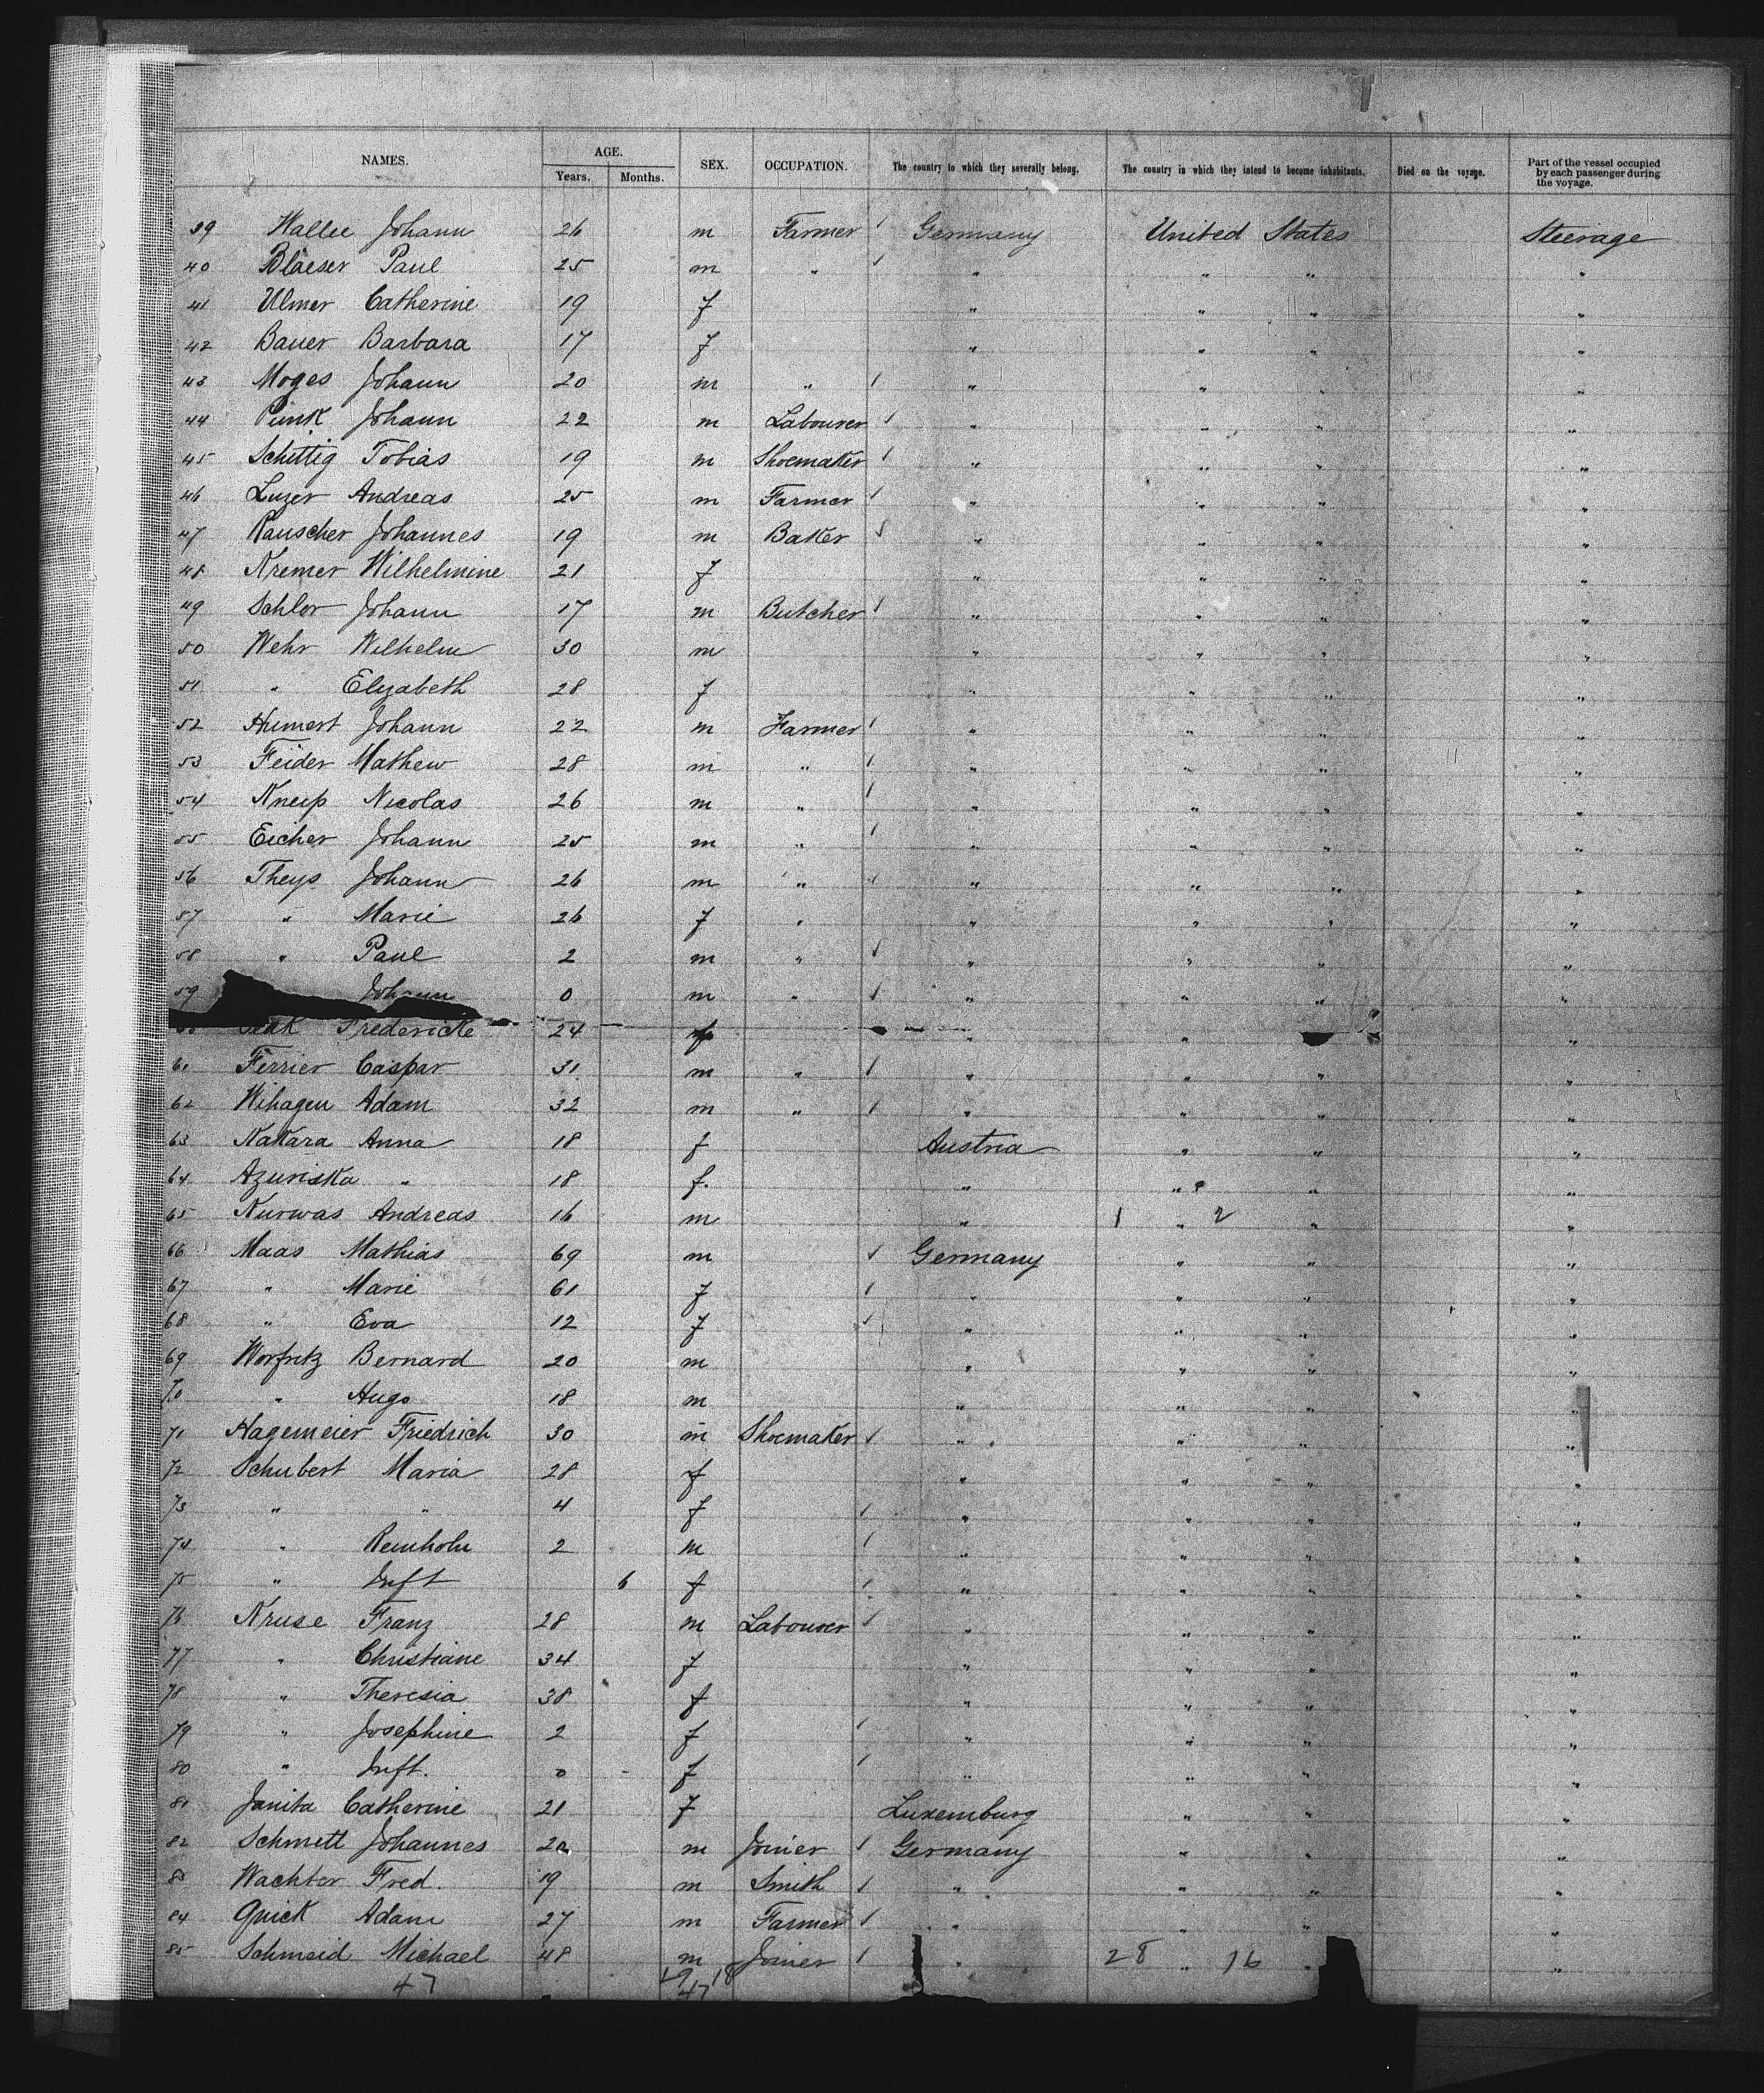 NAMES. AGE. SEX. OCCUPATION. The country to which they severally belong. The country in which they intend to become inhabitants. Died on the voyage. Part of the vessel occupied by each passenger during the voyage.
Years. Months.
39 Wallee Johann 26 m Farmer Germany United States Steerage
40 Blaeser Paul 25 m " " " " "
41 Ulmer Catherine 19 f " " " "
42 Bauer Barbara 17 f " " " "
43 Moges Johann 20 m " " " " "
44 Pink Johann 22 m Labourer " " " "
45 Schittig Tobias 19 m Shoemaker " " " "
46 Luzer Andreas 25 m Farmer " " " "
47 Rauscher Johannes 19 m Baker " " " "
48 Kremer Wilhelmine 21 f " " " "
49 Schlor Johann 17 m Butcher " " " "
50 Wehr Wilhelm 30 m " " " "
51 " Elyzabeth 28 f " " " "
52 Humert Johann 22 m Farmer " " " "
53 Feider Mathew 28 m " " " " "
54 Kneip Nicolas 26 m " " " " "
55 Eicher Johann 25 m " " " " "
56 Theys Johann 26 m " " " " "
57 " Marie 26 f " " " " "
58 " Paul 2 m " " " " "
59 Johann 0 m " " " " "
60 Fredericke 24 f " " "
61 Ferrier Caspar 31 m " " " " "
62 Wihagen Adam 32 m " " " " "
63 Kakara Anna 18 f Austria " " "
64 Azuriska " 18 f. " " " "
65 Kurwas Andreas 16 m " 1 " 2 " "
66 Maas Mathias 69 m Germany " " "
67 " Marie 61 f " " " "
68 " Eva 12 f " " " "
69 Worfritz Bernard 20 m " " " "
70 " Hugo 18 m " " " "
71 Hagemeier Friedrich 30 m Shoemaker " " " "
72 Schubert Maria 28 f " " " "
73 " " 4 f " " " "
74 " Reinholn 2 m " " " "
75 " Inft 6 f " " " "
76 Kruse Franz 28 m Labourer " " " "
77 " Christiane 34 f " " " "
78 " Theresia 38 f " " " "
79 " Josephine 2 f " " " "
80 " Inft. 0 - f " " " "
81 Janita Catherine 21 f Luxemburg " " "
82 Schmett Johannes m Joiner Germany " " "
83 Wachter Fred. 19 m Smith " " " "
84 Quick Adam 27 m Farmer " " " "
85 Schmeid Michael 48 m Joiner " 28 " 16 " "
47 29 18
47